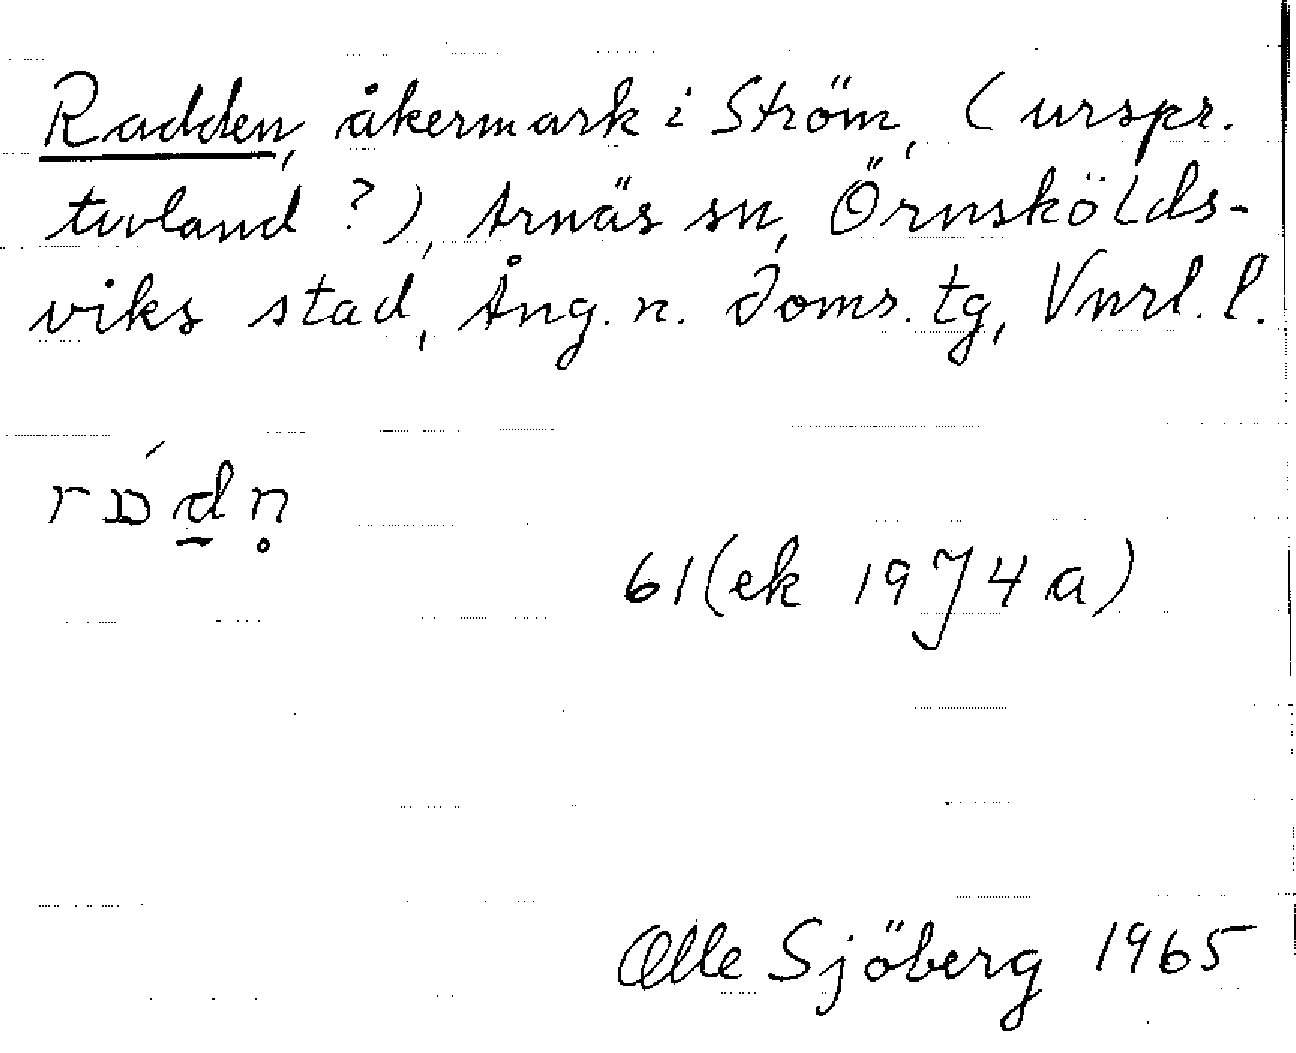 Radden, åkermark i Ström, (urspr.
tuvland?), Arnäs sn, Örnskölds-
viks stad, Ång. n. doms. tg, Vnrl. l.
rɒ́d̠n̥
61(ek 1974 a)
Olle Sjöberg 1965